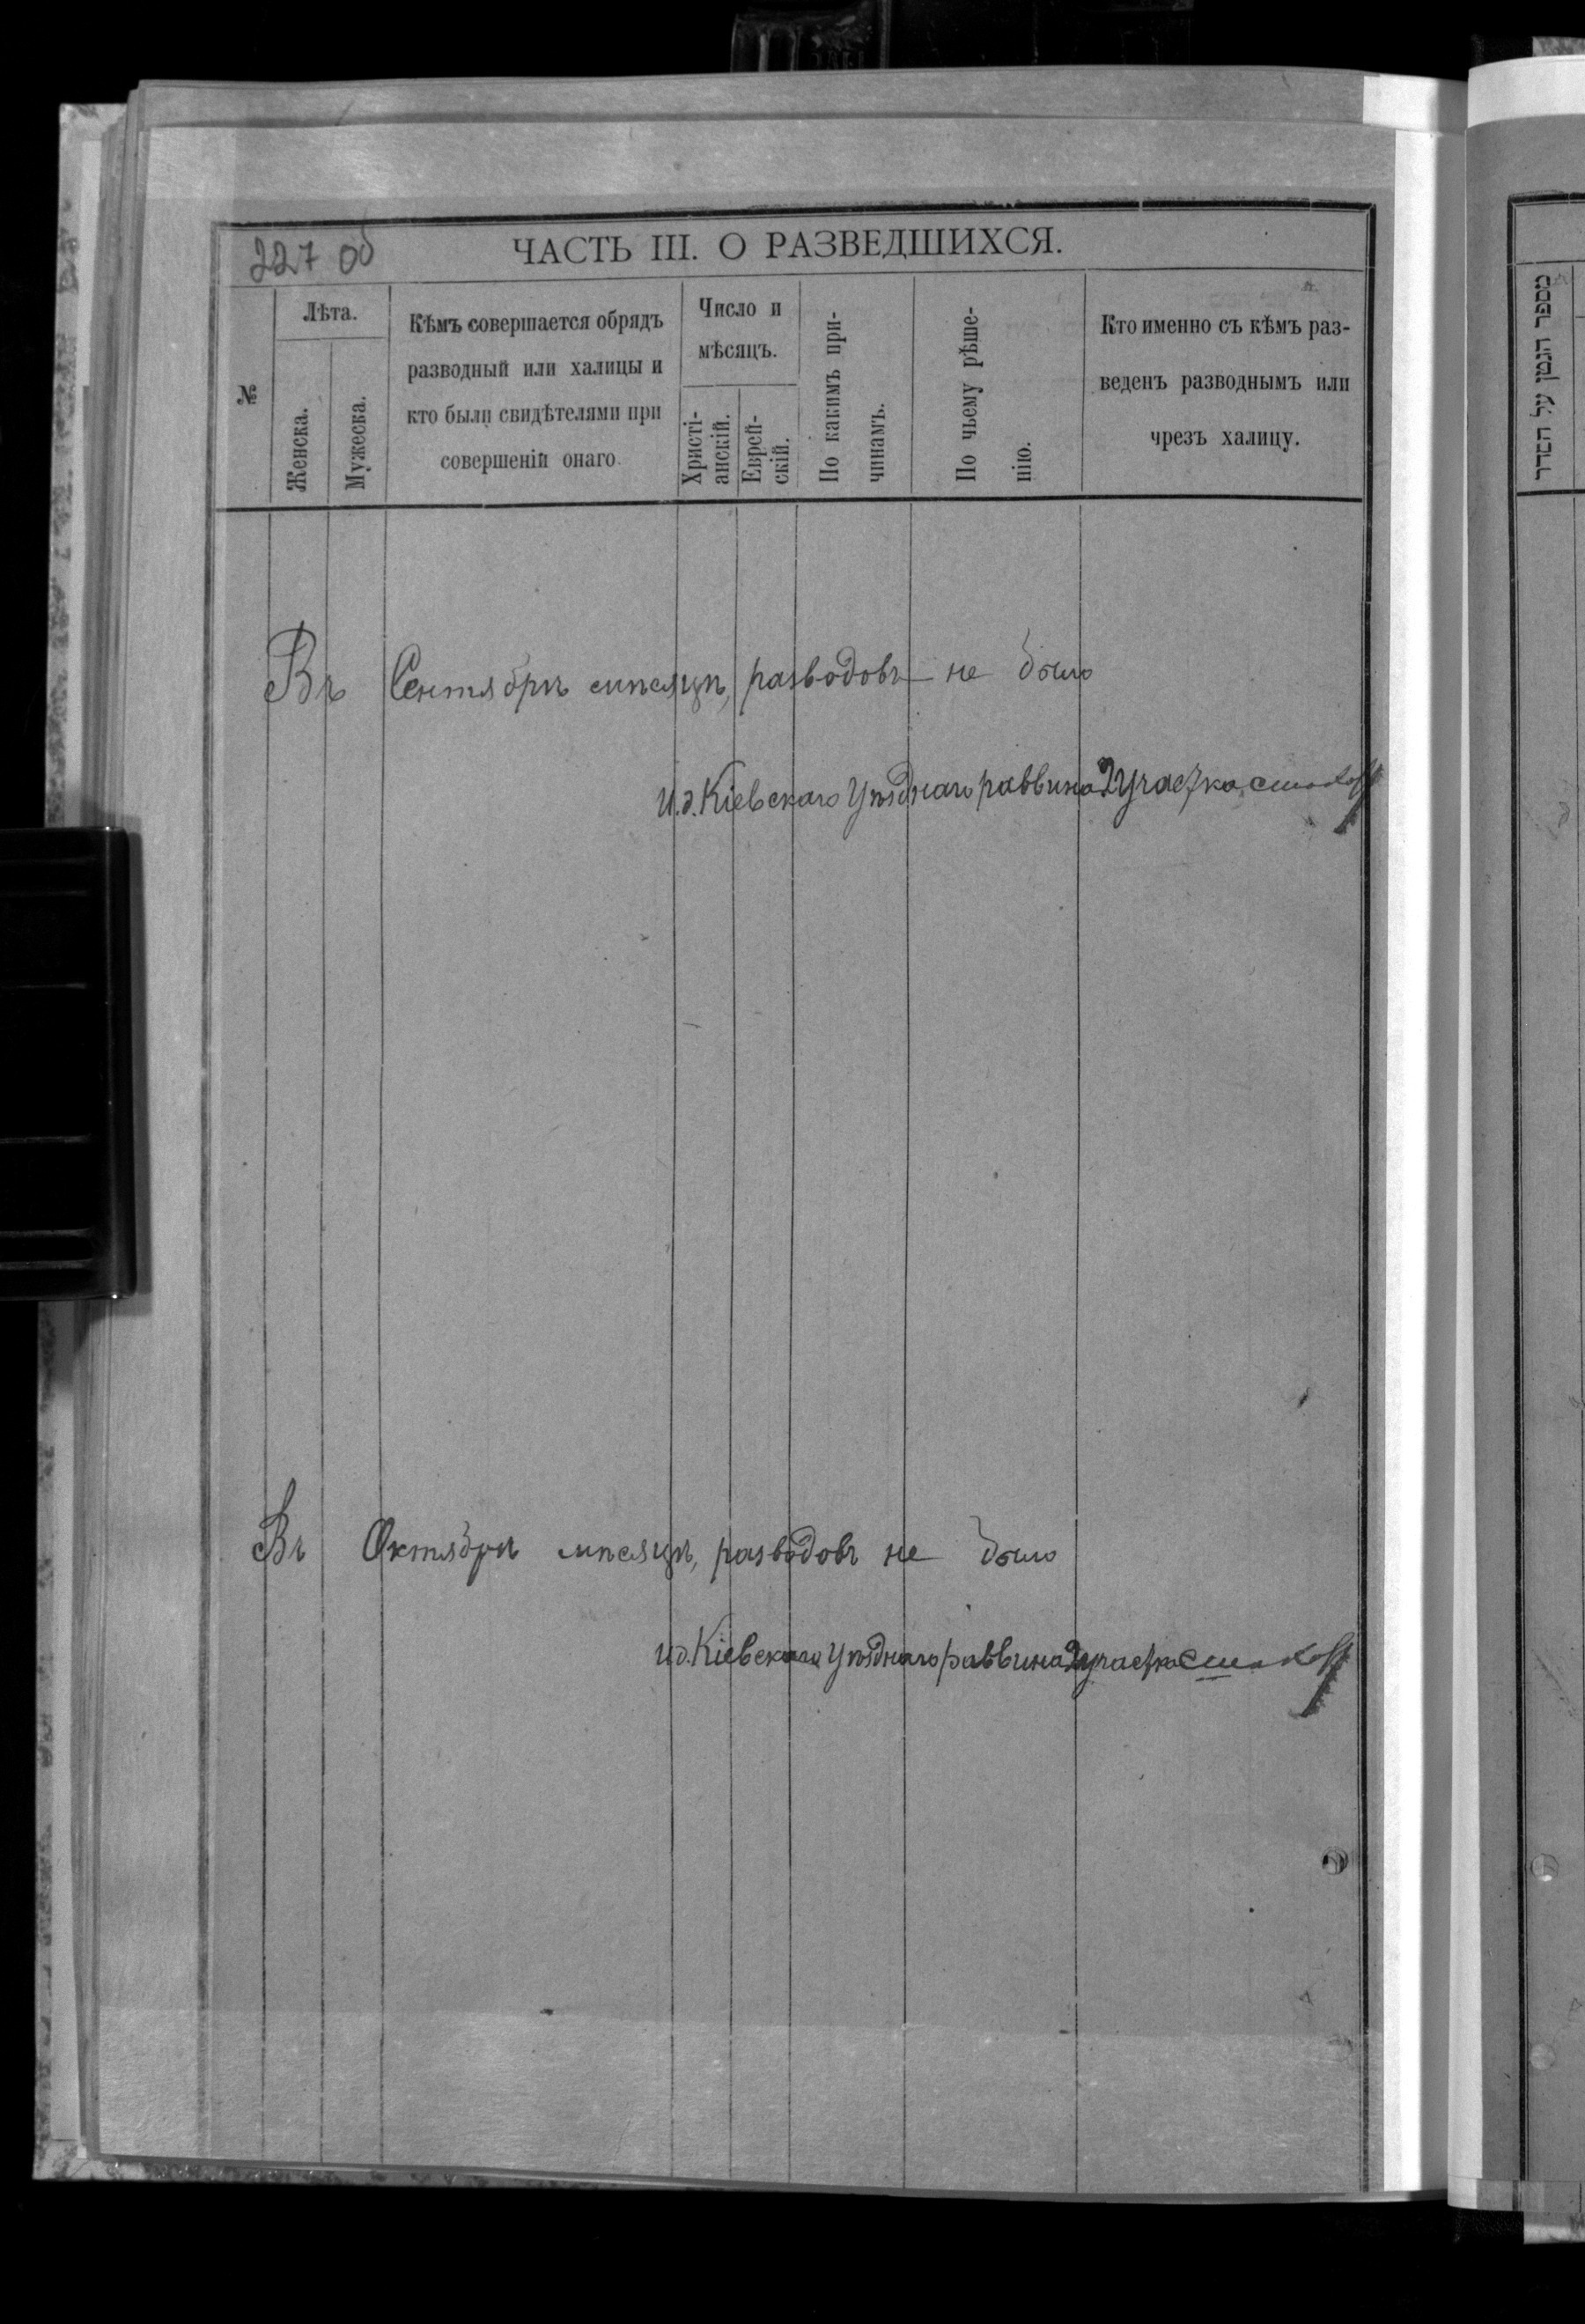 227 об
ЧАСТЬ III. О РАЗВЕДШИХСЯ.
№
Лѣта.
Женска.
Мужеска.
Кѣмъ совершается обрядъ
разводный или халицы и
кто были свидѣтелями при
совершеній онаго.
Число и
мѣсяцъ.
Христі-
анскій.
Еврей-
скій.
По какимъ при-
чинамъ.
По чьему рѣше-
нію.
Кто именно съ кѣмъ раз-
веденъ разводнымъ или
чрезъ халицу.
Въ Сентябрѣ мѣсяцѣ, разводовъ не было
И.д. Кіевскаго Уѣзднаго раввина 2 участка
Въ Октябрѣ мѣсяцѣ, разводовъ не было
И.д. Кіевскаго Уѣзднаго раввина 2 участка
מספר הגטן על הסדר